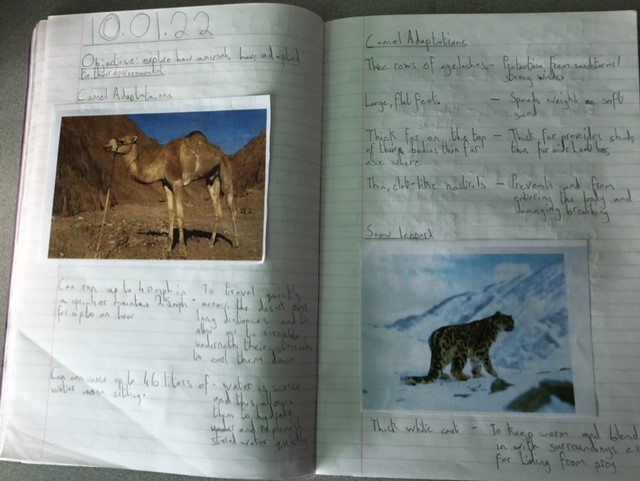 10.01.22
Objective: explore how animals have adapted
to their environment
Camel Adaptations
Can run up to 40mph in - To travel quickly
a sprint or maintain 25mph across the desert over
for upto an hour long distances and to
allow air to circulate
underneath their stomachs
to cool them down
Can consume up to 46 liters of - water is scarce
water in one sitting. and thus allows
them to hydrate
and replenish
stored water quickly
Camel Adaptations
Thee rows of eyelashes - Protection from sandstorms/
strong winds
Large, flat feet - Spreads weight on soft
sand
Thick fur on the top - Thick fur provides shade,
of things bodies thin fur thin fur
else where
Thin, slit-like nostrils - Prevents sand from
entering the body and
damaging breathing
Snow leopard
Thick white coat - To keep warm and blend
in with surroundings
for hiding from prey